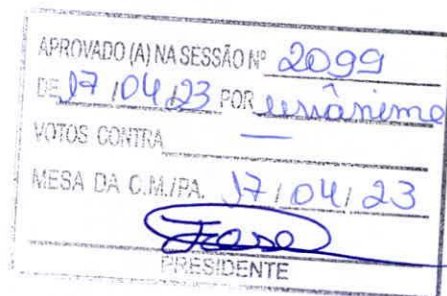 APROVADO (A) NA SESSÃO Nº 2099
DE 17 / 04 / 23 POR unânime
VOTOS CONTRA —
MESA DA C.M./PA. 17 / 04 / 23
PRESIDENTE